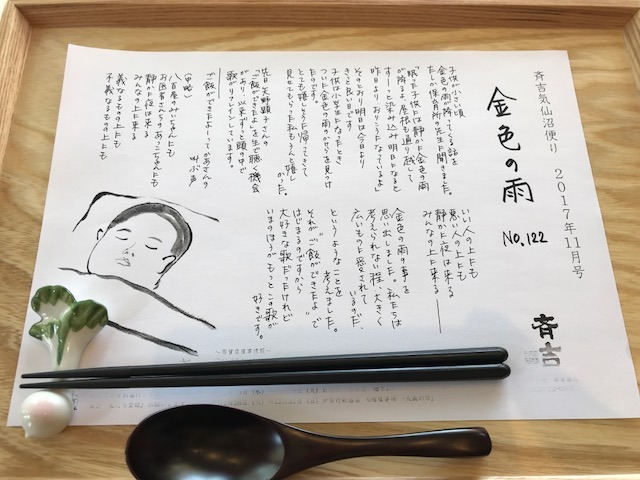 斉吉気仙沼便り 2017年11月号
金色の雨
No.122
子供が小さい頃
金色の雨が降ってくる話を
たしか保育所の先生に聞きました。
「眠った子供には静かに金色の雨
が降るよ。屋根も通り越して
すーっと染み込み明日になると
昨日よりおりこうになっているよ」
そのとおり明日は今日より
きっと良い日です。
子供は小学生になったとき
ついに金色の雨のかけらを見つけ
たのです。
とても嬉しそうに帰ってきて
見せてもらった私もうんと嬉し
かった。
先日、矢野顕子さんの
「ご飯ができたよ」を生で聴く機会
があり、以来ずっと頭の中で
歌がリフレインしています。
ご飯ができたよってかあさんの
叫ぶ声
(中略)
八百屋のみいちゃんにも
お医者さんちのあっこちゃんにも
静かに夜は来る
みんなの上に来る
義なるものの上にも
不義なるものの上にも
いい人の上にも
悪い人の上にも
静かに夜は来る
みんなの上に来る
金色の雨の事を
思い出しました。私たちは
考えられない程、大きく
広いものに愛されて
いるのだ、
というようなことを
考えました。
それが"ご飯ができたよ"で
はじまるのですから
大好きな歌だったけれど
いまのほうがもっとこの歌が
好きです。
斉吉